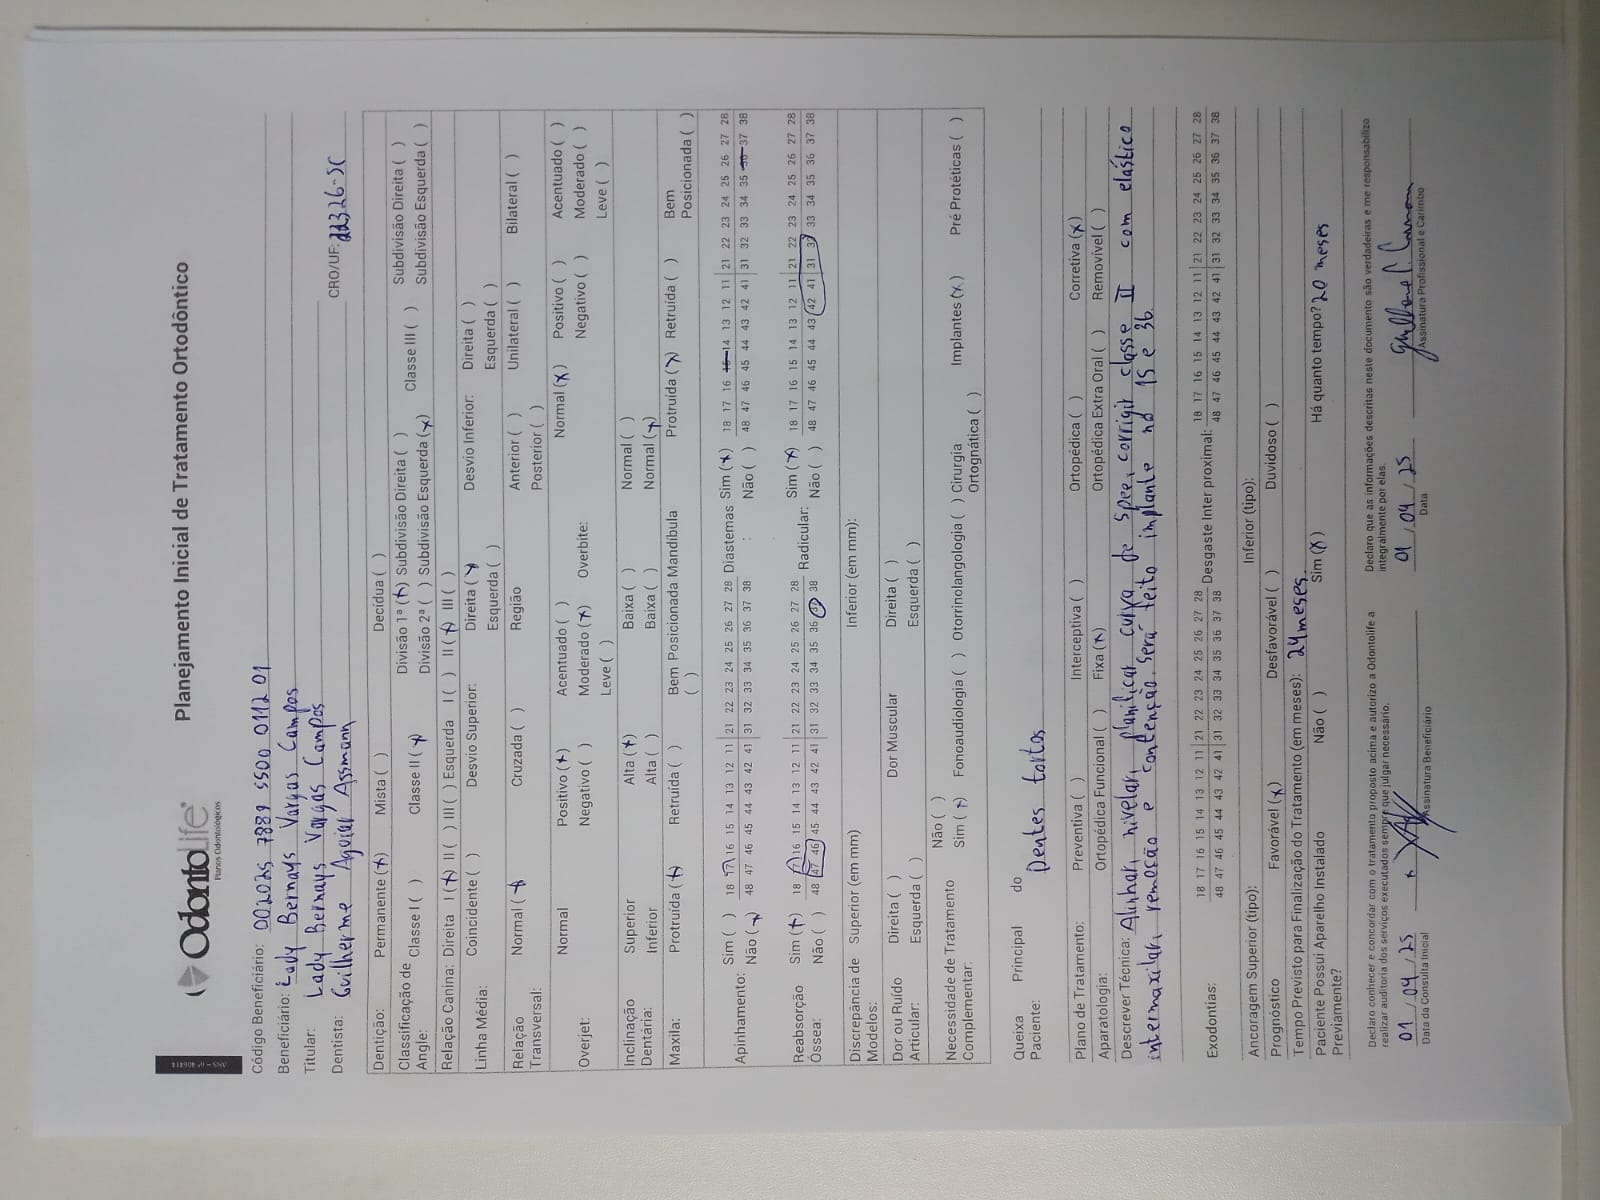 OdontoLife®
Planos Odontológicos
Planejamento Inicial de Tratamento Ortodôntico
ANS - nº 406414
Código Beneficiário: 002025 7889 5500 0112 01
Beneficiário: Lady Bernays Vargas Campos
Titular: Lady Bernays Vargas Campos
Dentista: Guilherme Aguiar Assmann CRO/UF: 22326-SC
Dentição: Permanente (x) Mista ( ) Decídua ( )
Classificação de Angle: Classe I ( ) Classe II (x) Divisão 1ª (x) Subdivisão Direita ( ) Classe III ( ) Subdivisão Direita ( )
Divisão 2ª ( ) Subdivisão Esquerda (x) Subdivisão Esquerda ( )
Relação Canina: Direita I (x) II ( ) III ( ) Esquerda I ( ) II (x) III ( )
Linha Média: Coincidente ( ) Desvio Superior: Direita (x) Desvio Inferior: Direita ( )
Esquerda ( ) Esquerda ( )
Relação Transversal: Normal (x) Cruzada ( ) Região Anterior ( ) Unilateral ( ) Bilateral ( )
Posterior ( )
Overjet: Normal Positivo (x) Acentuado ( ) Overbite: Normal (x) Positivo ( ) Acentuado ( )
Negativo ( ) Moderado (x) Negativo ( ) Moderado ( )
Leve ( ) Leve ( )
Inclinação Dentária: Superior Alta (x) Baixa ( ) Normal ( )
Inferior Alta ( ) Baixa ( ) Normal (x)
Maxila: Protruída (x) Retruída ( ) Bem Posicionada ( ) Mandíbula Protruída (x) Retruída ( ) Bem Posicionada ( )
Apinhamento: Sim ( ) 18 17 16 15 14 13 12 11 | 21 22 23 24 25 26 27 28 Diastemas Sim (x) 18 17 16 15 14 13 12 11 | 21 22 23 24 25 26 27 28
Não (x) 48 47 46 45 44 43 42 41 | 31 32 33 34 35 36 37 38 : Não ( ) 48 47 46 45 44 43 42 41 | 31 32 33 34 35 36 37 38
Reabsorção Óssea: Sim (x) 18 17 16 15 14 13 12 11 | 21 22 23 24 25 26 27 28 Radicular: Sim (x) 18 17 16 15 14 13 12 11 | 21 22 23 24 25 26 27 28
Não ( ) 48 47 46 45 44 43 42 41 | 31 32 33 34 35 36 37 38 Não ( ) 48 47 46 45 44 43 42 41 | 31 32 33 34 35 36 37 38
Discrepância de Modelos: Superior (em mm) Inferior (em mm):
Dor ou Ruído Articular: Direita ( ) Dor Muscular Direita ( )
Esquerda ( ) Esquerda ( )
Necessidade de Tratamento Complementar: Não ( )
Sim (x) Fonoaudiologia ( ) Otorrinolangologia ( ) Cirurgia Ortognática ( ) Implantes (x) Pré Protéticas ( )
Queixa Principal do Paciente: Dentes tortos
Plano de Tratamento: Preventiva ( ) Interceptiva ( ) Ortopédica ( ) Corretiva (x)
Aparatologia: Ortopédica Funcional ( ) Fixa (x) Ortopédica Extra Oral ( ) Removível ( )
Descrever Técnica: Alinhar, nivelar, planificar curva de spee, corrigir classe II com elástico
intermaxilar, remoção e contenção. Será feito implante no 15 e 36.
Exodontias: 18 17 16 15 14 13 12 11 | 21 22 23 24 25 26 27 28 Desgaste Inter proximal: 18 17 16 15 14 13 12 11 | 21 22 23 24 25 26 27 28
48 47 46 45 44 43 42 41 | 31 32 33 34 35 36 37 38 48 47 46 45 44 43 42 41 | 31 32 33 34 35 36 37 38
Ancoragem Superior (tipo): Inferior (tipo):
Prognóstico Favorável (x) Desfavorável ( ) Duvidoso ( )
Tempo Previsto para Finalização do Tratamento (em meses): 24 meses.
Paciente Possuí Aparelho Instalado Previamente? Não ( ) Sim (x) Há quanto tempo? 20 meses
Declaro conhecer e concordar com o tratamento proposto acima e autorizo a Odontolife a
realizar auditoria dos serviços executados sempre que julgar necessário.
01 / 04 / 25 x
Data da Consulta Inicial Assinatura Beneficiário
Declaro que as informações descritas neste documento são verdadeiras e me responsabilizo
integralmente por elas.
01 / 04 / 25
Data Assinatura Profissional e Carimbo